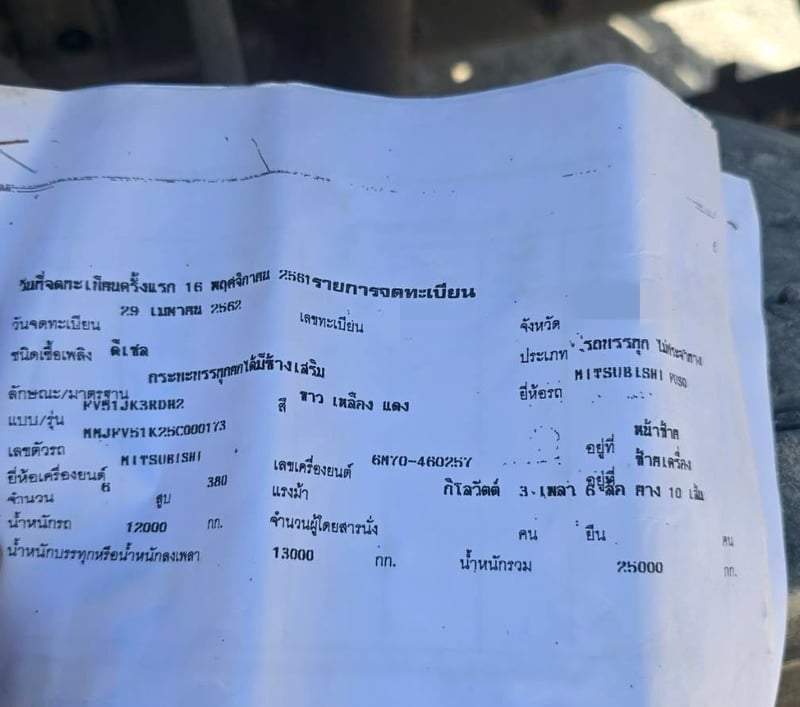 วันที่จดทะเบียนครั้งแรก 16 พฤศจิกายน 2561 รายการจดทะเบียน
วันจดทะเบียน 29 เมษาคน 2562 เลขทะเบียน จังหวัด
ชนิดเชื้อเพลิง ดีเซล ประเภท รถบรรทุก ไม่ประจำทาง
ลักษณะ/มาตรฐาน กระบะบรรทุกยกได้มีข้างเสริม ยี่ห้อรถ MITSUBISHI FUSO
แบบ/รุ่น FV51JK3RDH2 สี ขาว เหลือง แดง
เลขตัวรถ MMJFV51K25C000173 อยู่ที่ หน้าซ้าย
ยี่ห้อเครื่องยนต์ MITSUBISHI เลขเครื่องยนต์ 6M70-460257 อยู่ที่ ซ้ายเครื่อง
จำนวน 6 สูบ 380 แรงม้า กิโลวัตต์ 3 เพลา 6 ล้อ ยาง 10 เส้น
น้ำหนักรถ 12000 กก. จำนวนผู้โดยสารนั่ง คน ยืน คน
น้ำหนักบรรทุกหรือน้ำหนักลงเพลา 13000 กก. น้ำหนักรวม 25000 กก.